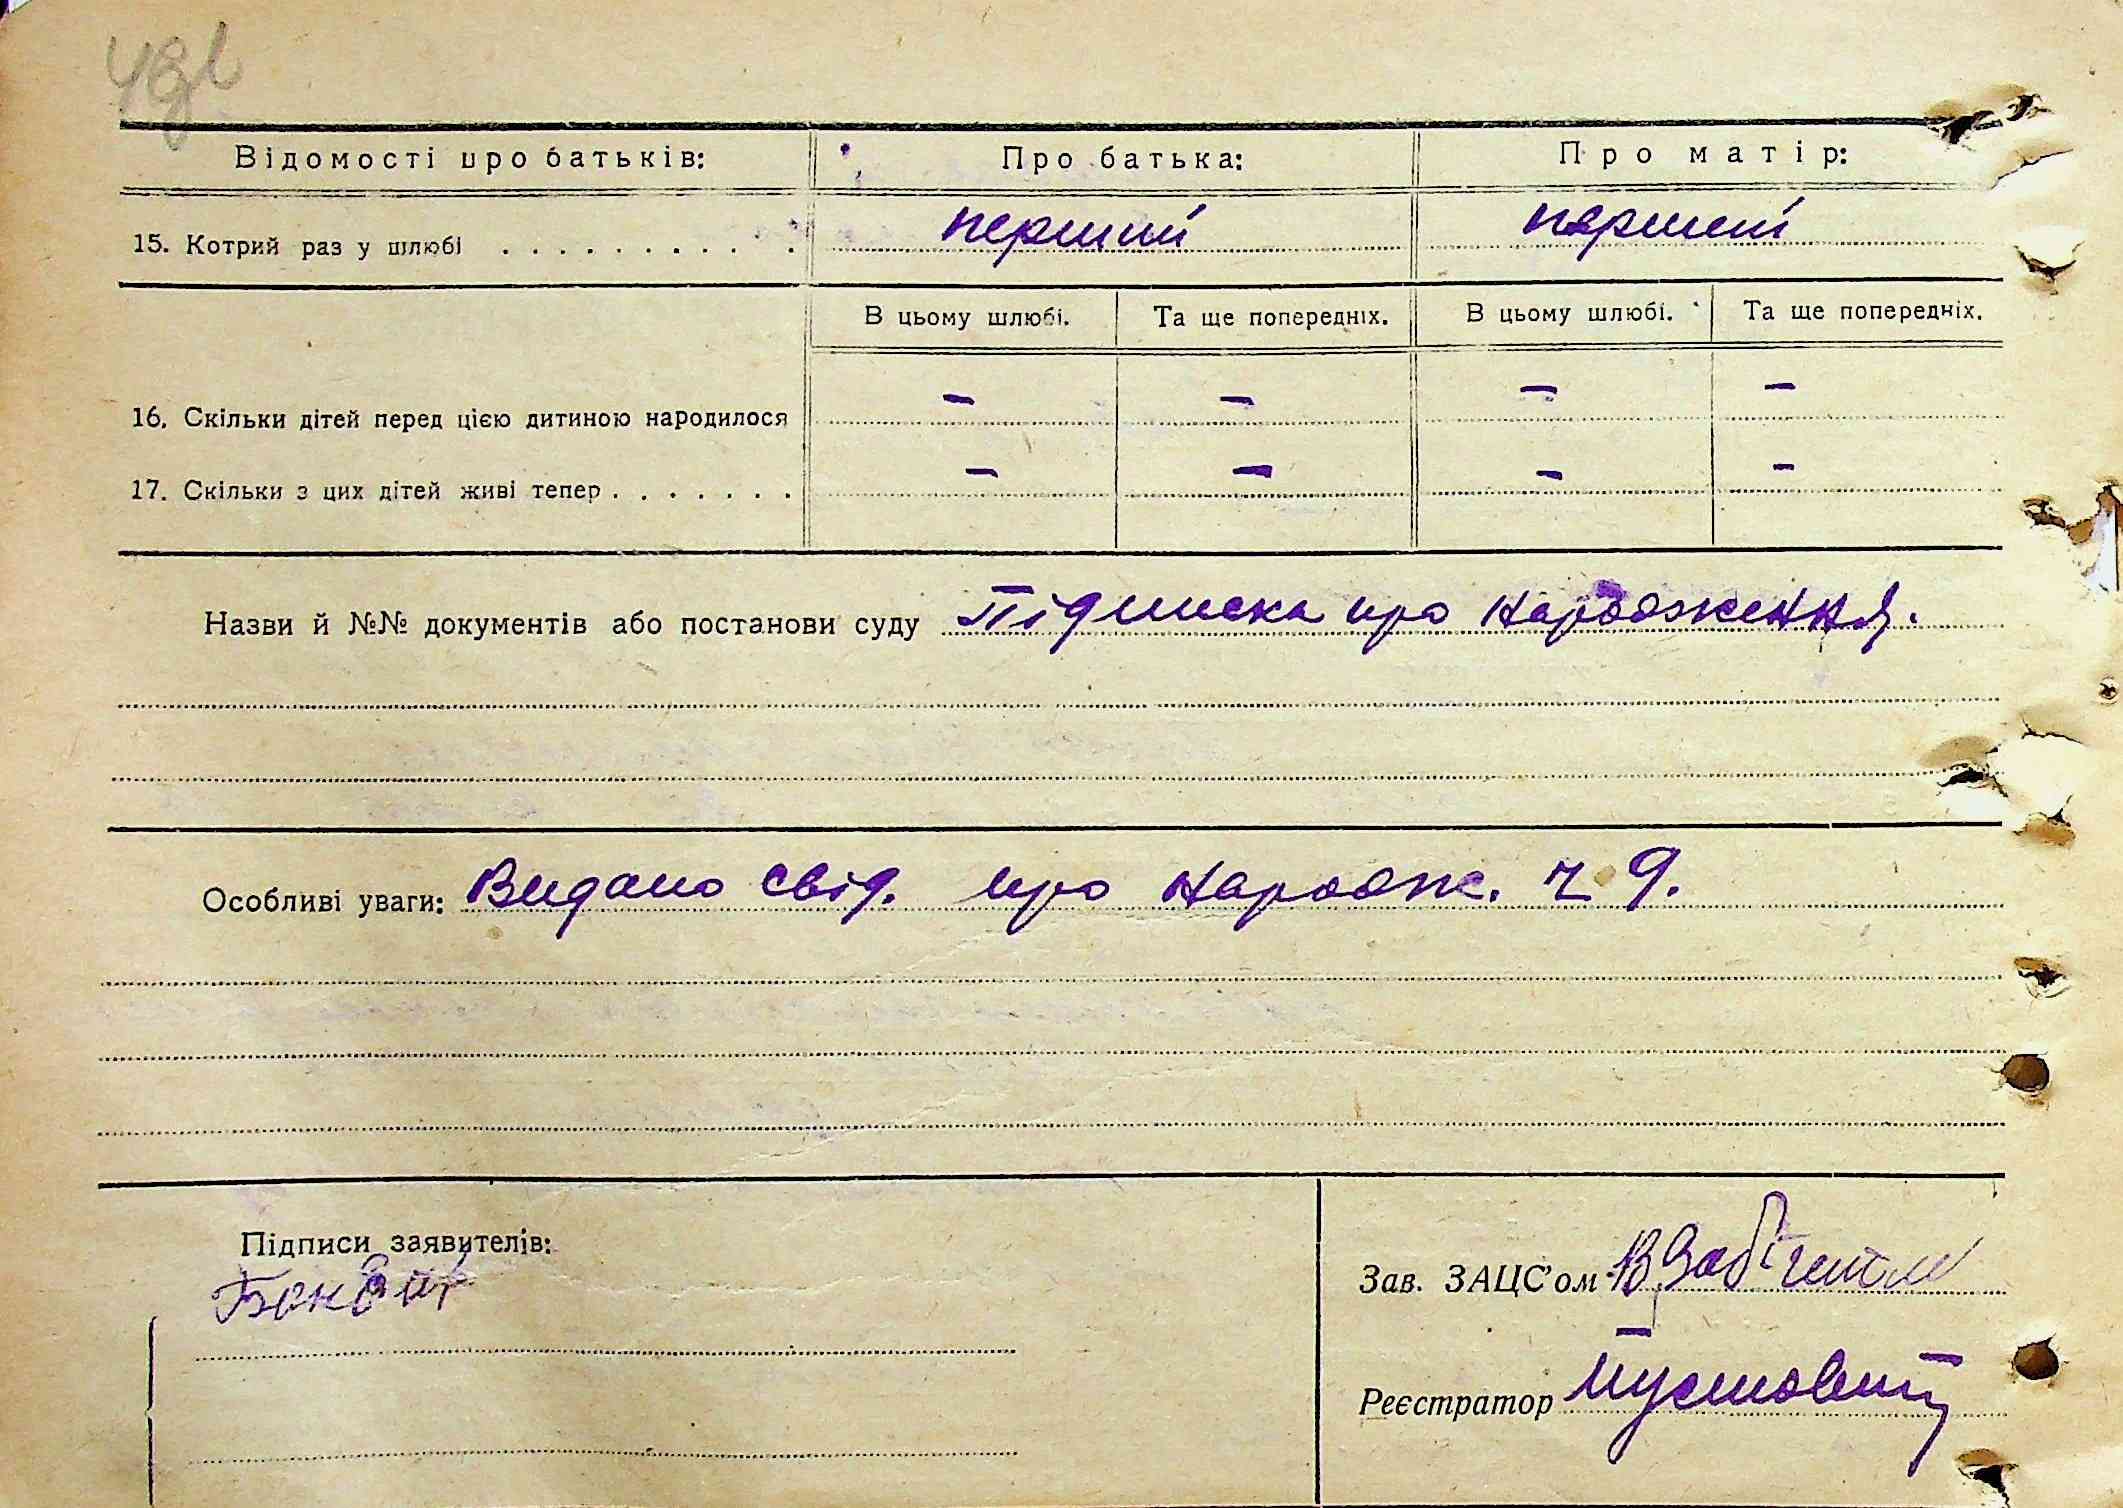 Відомості про батьків: Про батька: Про матір:
15. Котрий раз у шлюбі . . . . . . . . . . . перший перший
В цьому шлюбі. Та ще попередніх. В цьому шлюбі. Та ще попередніх.
16. Скільки дітей перед цією дитиною народилося – – – –
17. Скільки з цих дітей живі тепер . . . . . . . – – – –
Назви й №№ документів або постанови суду Підписка про народження.
Особливі уваги: Видано свід. про народж. ч 9.
Підписи заявителів:
Зав. ЗАЦС'ом В.
Реєстратор Пустовіт